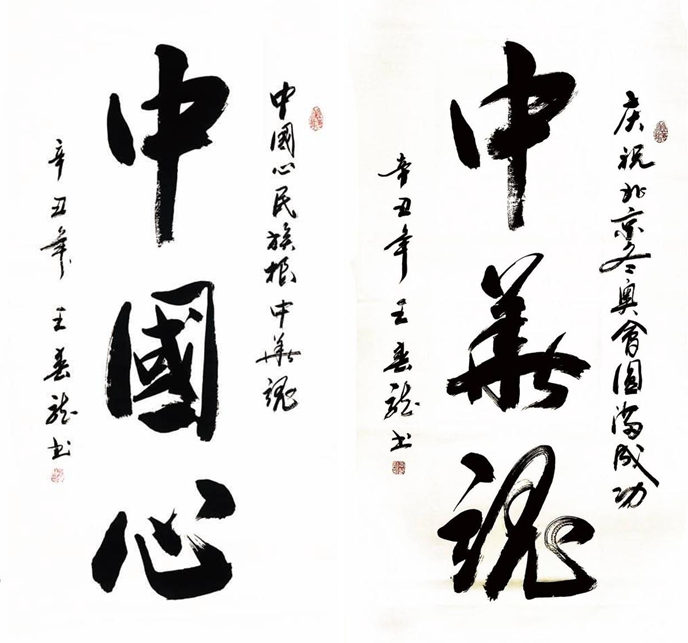 中國心民族根中華魂
中國心
辛丑年王春龍书
庆祝北京冬奧會圆满成功
中華魂
辛丑年王春龍书